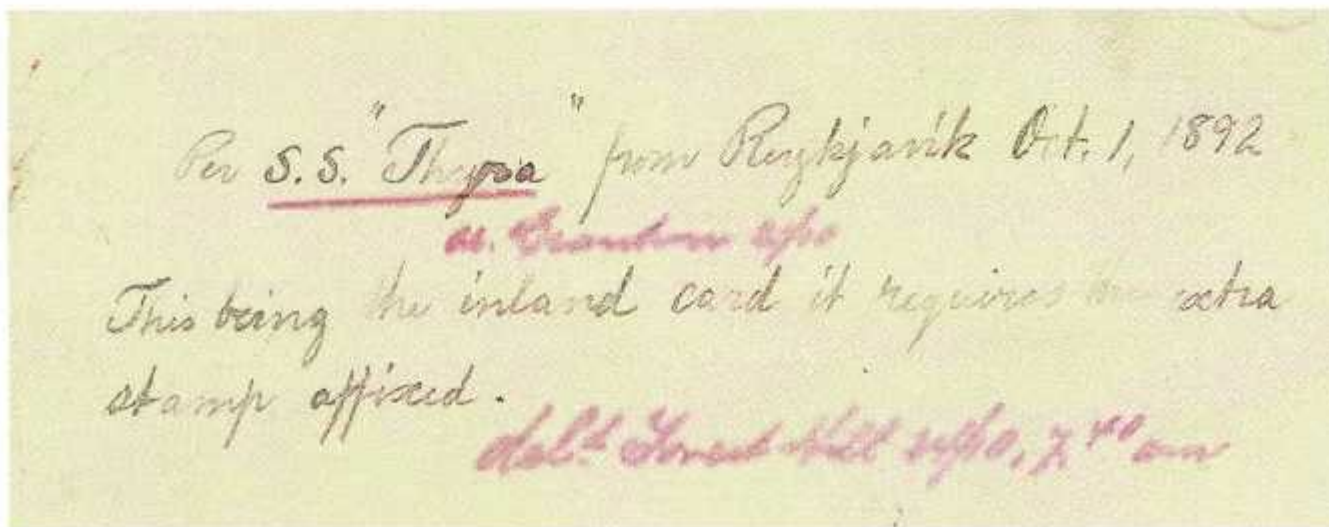 Per S.S. "Thyra" from Reykjavik Oct. 1, 1892
This being the inland card it requires the extra
stamp affixed.
deld. Forest Hill 7.40 am